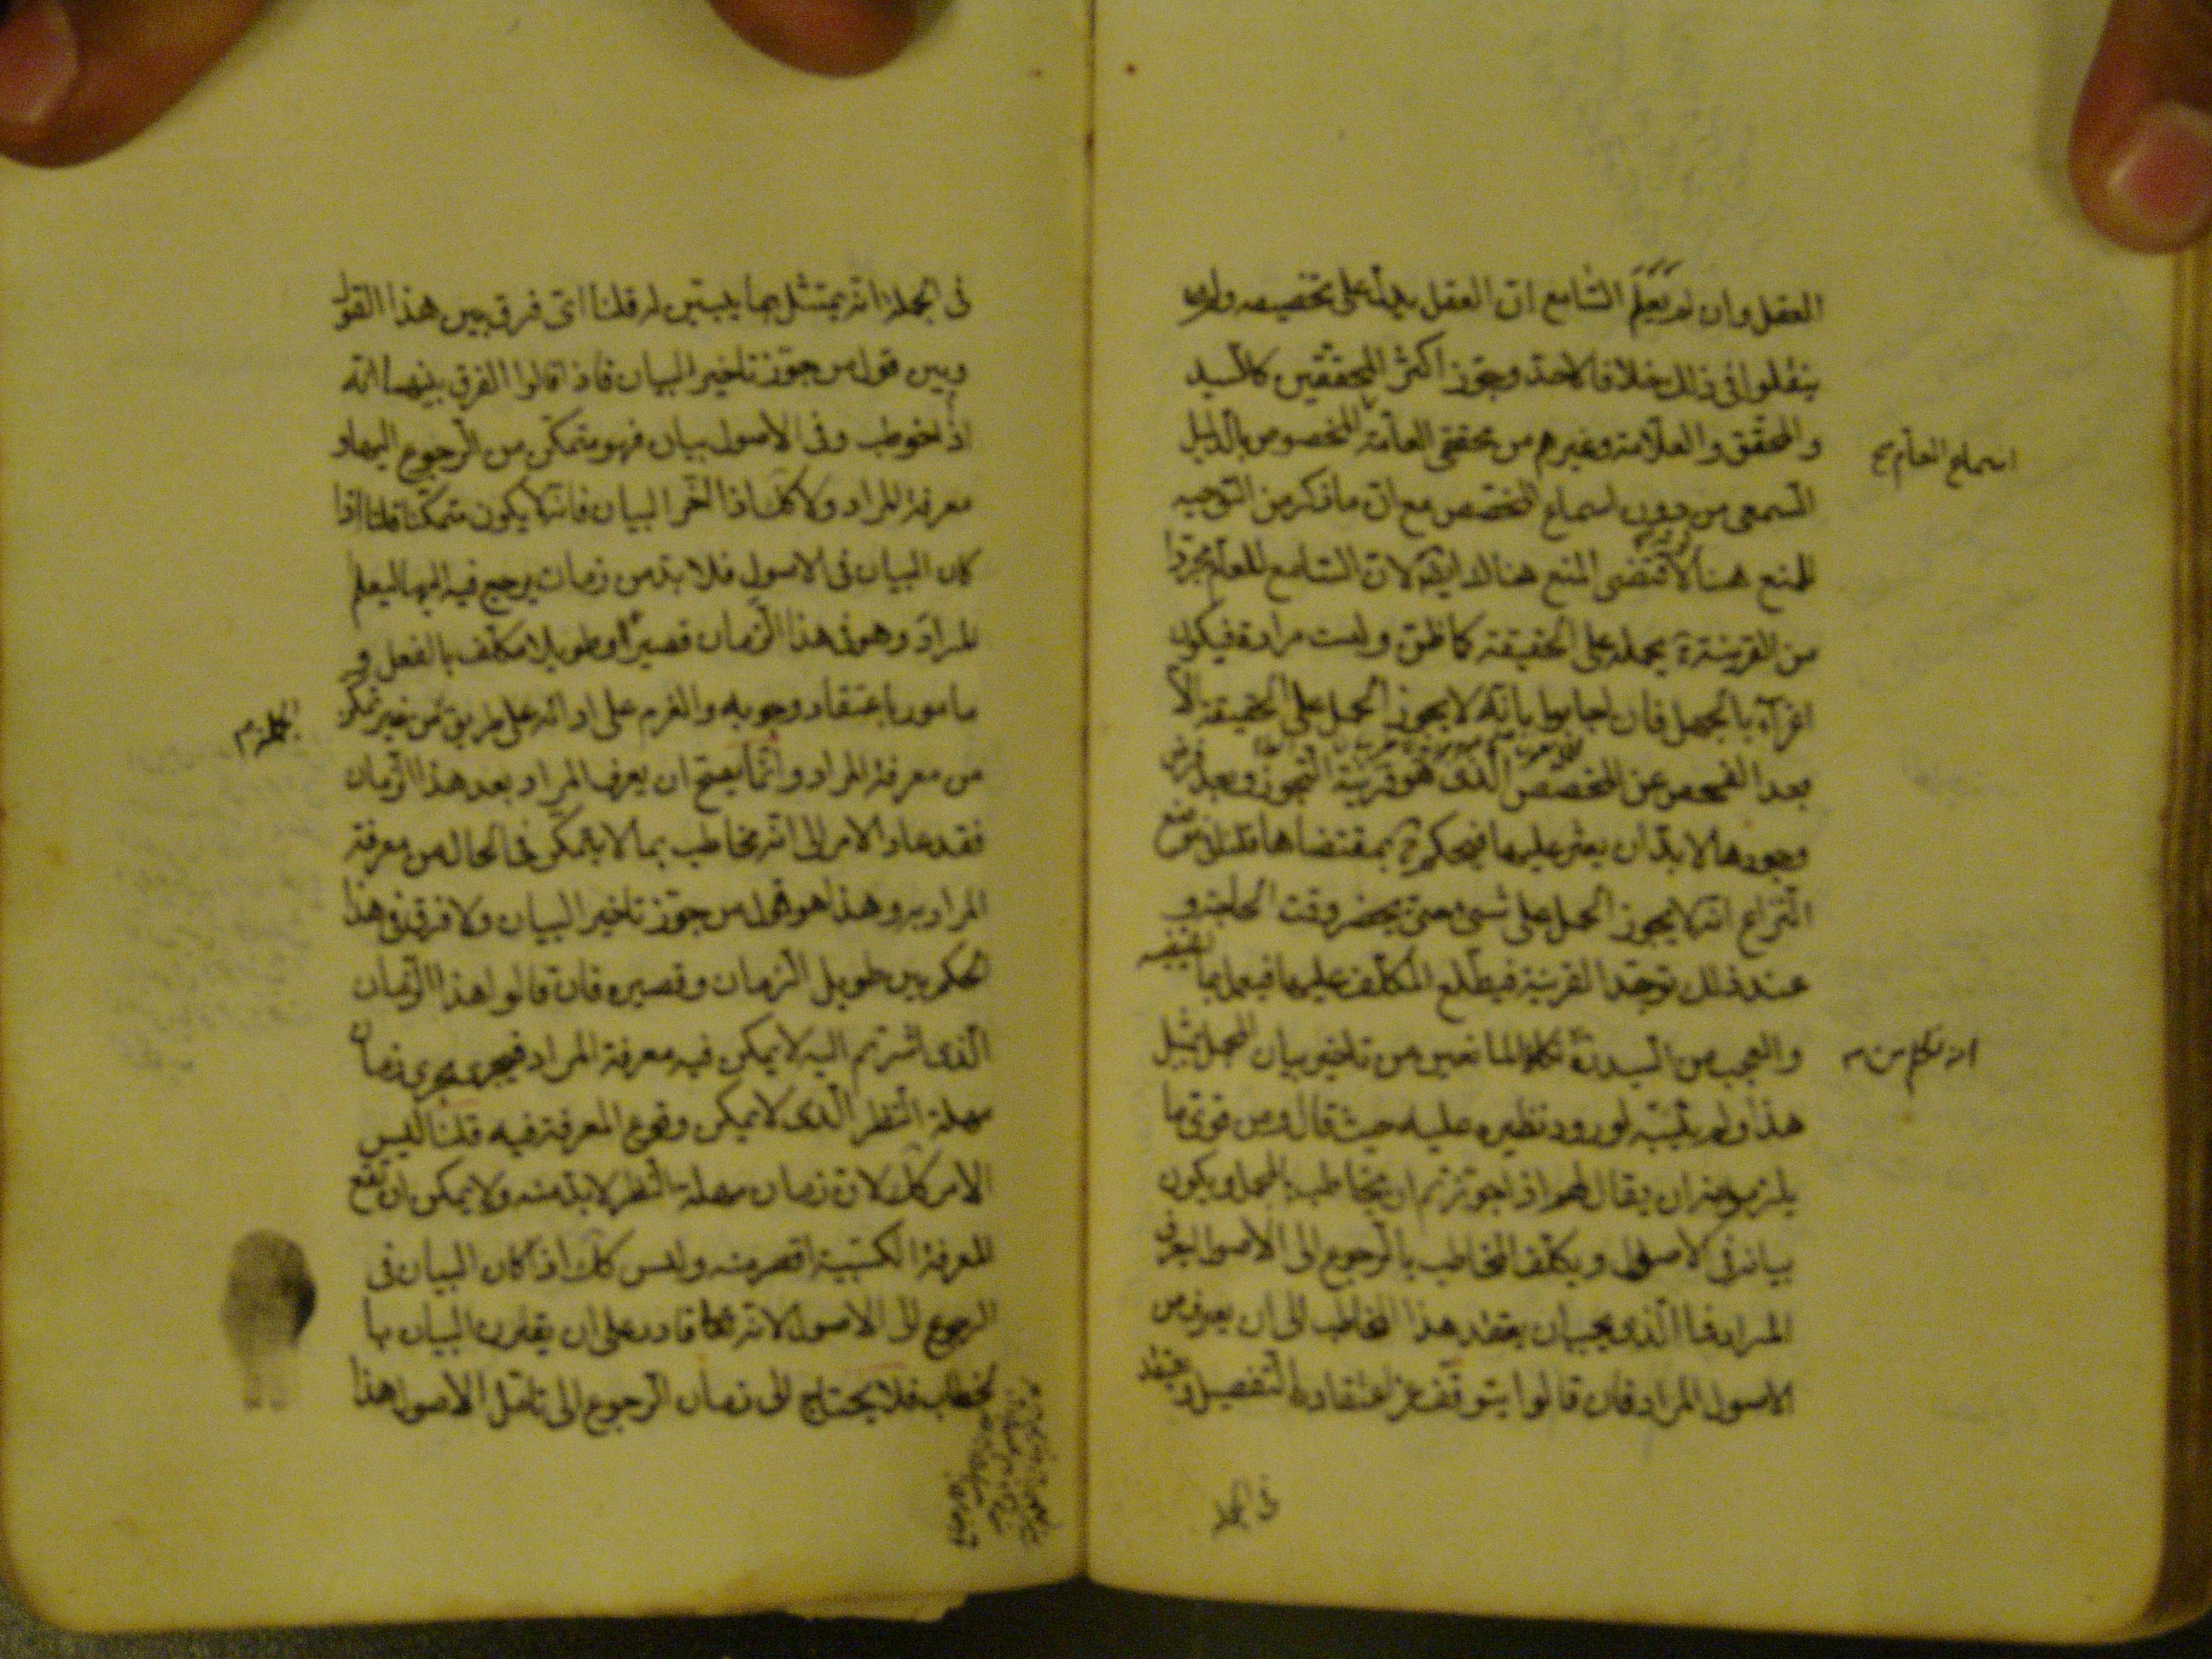 العقل وان لم يعلم السامع ان العقل يدل على تخصيصه ولم
ينقلوا في ذلك خلافا لاحد وجوز اكثر المحققين كالسيد
والمحقق والعلامة وغيرهم من محققي العامة المخصوص بالدليل
اسماع العام
السمعي من دون اسماع المخصص مع ان ما ذكر من التوجيه
للمنع هنا لاقتضى المنع هناك ايضا لان السامع للعام مجردا
من القرينة ح يحمله على الحقيقة كما ظن وليست مرادة فيكون
اغراء بالجهل فان اجابوا بانه لا يجوز الحمل على الحقيقة الا
بعد الفحص عن المخصص الذي هو قرينة التجوز وبعد فرض
وجودها لا بد ان يعثر عليها فيحكم ح بمقتضاها قلنا في موضع
النزاع انه لا يجوز الحمل على شيء حتى يحضر وقت الحاجة و
عند ذلك توجد القرينة فيطلع المكلف عليها فيعمل بما تقتضيه
والعجب من السيد ره انه تكلم على المانعين من تاخير بيان المجمل بمثل
هذا ولم يتنبه لورود نظيره عليه حيث قال ومن قوي ما
يلزمونه ان يقال لهم اذا جوزتم ان يخاطب بالمجمل ويكون
بيانه في الاصول ويكلف المخاطب بالرجوع الى الاصول ليعرف
المراد فما الذي يجب ان يعتقد هذا المخاطب الى ان يعرف من
الاصول المراد فان قالوا يتوقف عن اعتقاد التفصيل ويعتقد
في الجملة
في الجملة انه يمتثل بما يبين له قلنا اي فرق بين هذا القول
وبين قول من جوز تاخير البيان فاذا قالوا الفرق بينهما انه
اذا خوطب وفي الاصول بيان فهو متمكن من الرجوع اليها و
معرفة المراد ولا كك اذا اخر البيان فانه لا يكون متمكنا قلنا اذا
كان البيان في الاصول فلا بد من زمان يرجع فيه اليها ليعلم
المراد وهو في هذا الزمان قصيرا او طويلا مكلف بالفعل و
مامور باعتقاد وجوبه والعزم على ادائه على طريق الجملة من غير تمكن
من معرفة المراد وانما يصح ان يعرف المراد بعد هذا الزمان
فقد عاد الامر الى انه مخاطب بما لا يتمكن في الحال من معرفة
المراد به وهذا هو قول من جوز تاخير البيان ولا فرق في هذا
الحكم بين طويل الزمان وقصيره فان قالوا هذا الزمان
الذي اشرتم اليه لا يمكن فيه معرفة المراد فيجري مجرى زمان
مهلة النظر الذي لا يمكن وقوع المعرفة فيه قلنا ليس
الامر كك لان زمان مهلة النظر لا بد منه ولا يمكن ان تقع
المعرفة الكسبية اقصر منه وليس كك اذا كان البيان في
الرجوع الى الاصول لانه تعالى قادر على ان يقترن البيان بها
الخطاب فلا يحتاج الى زمان الرجوع الى تامل الاصول هذا